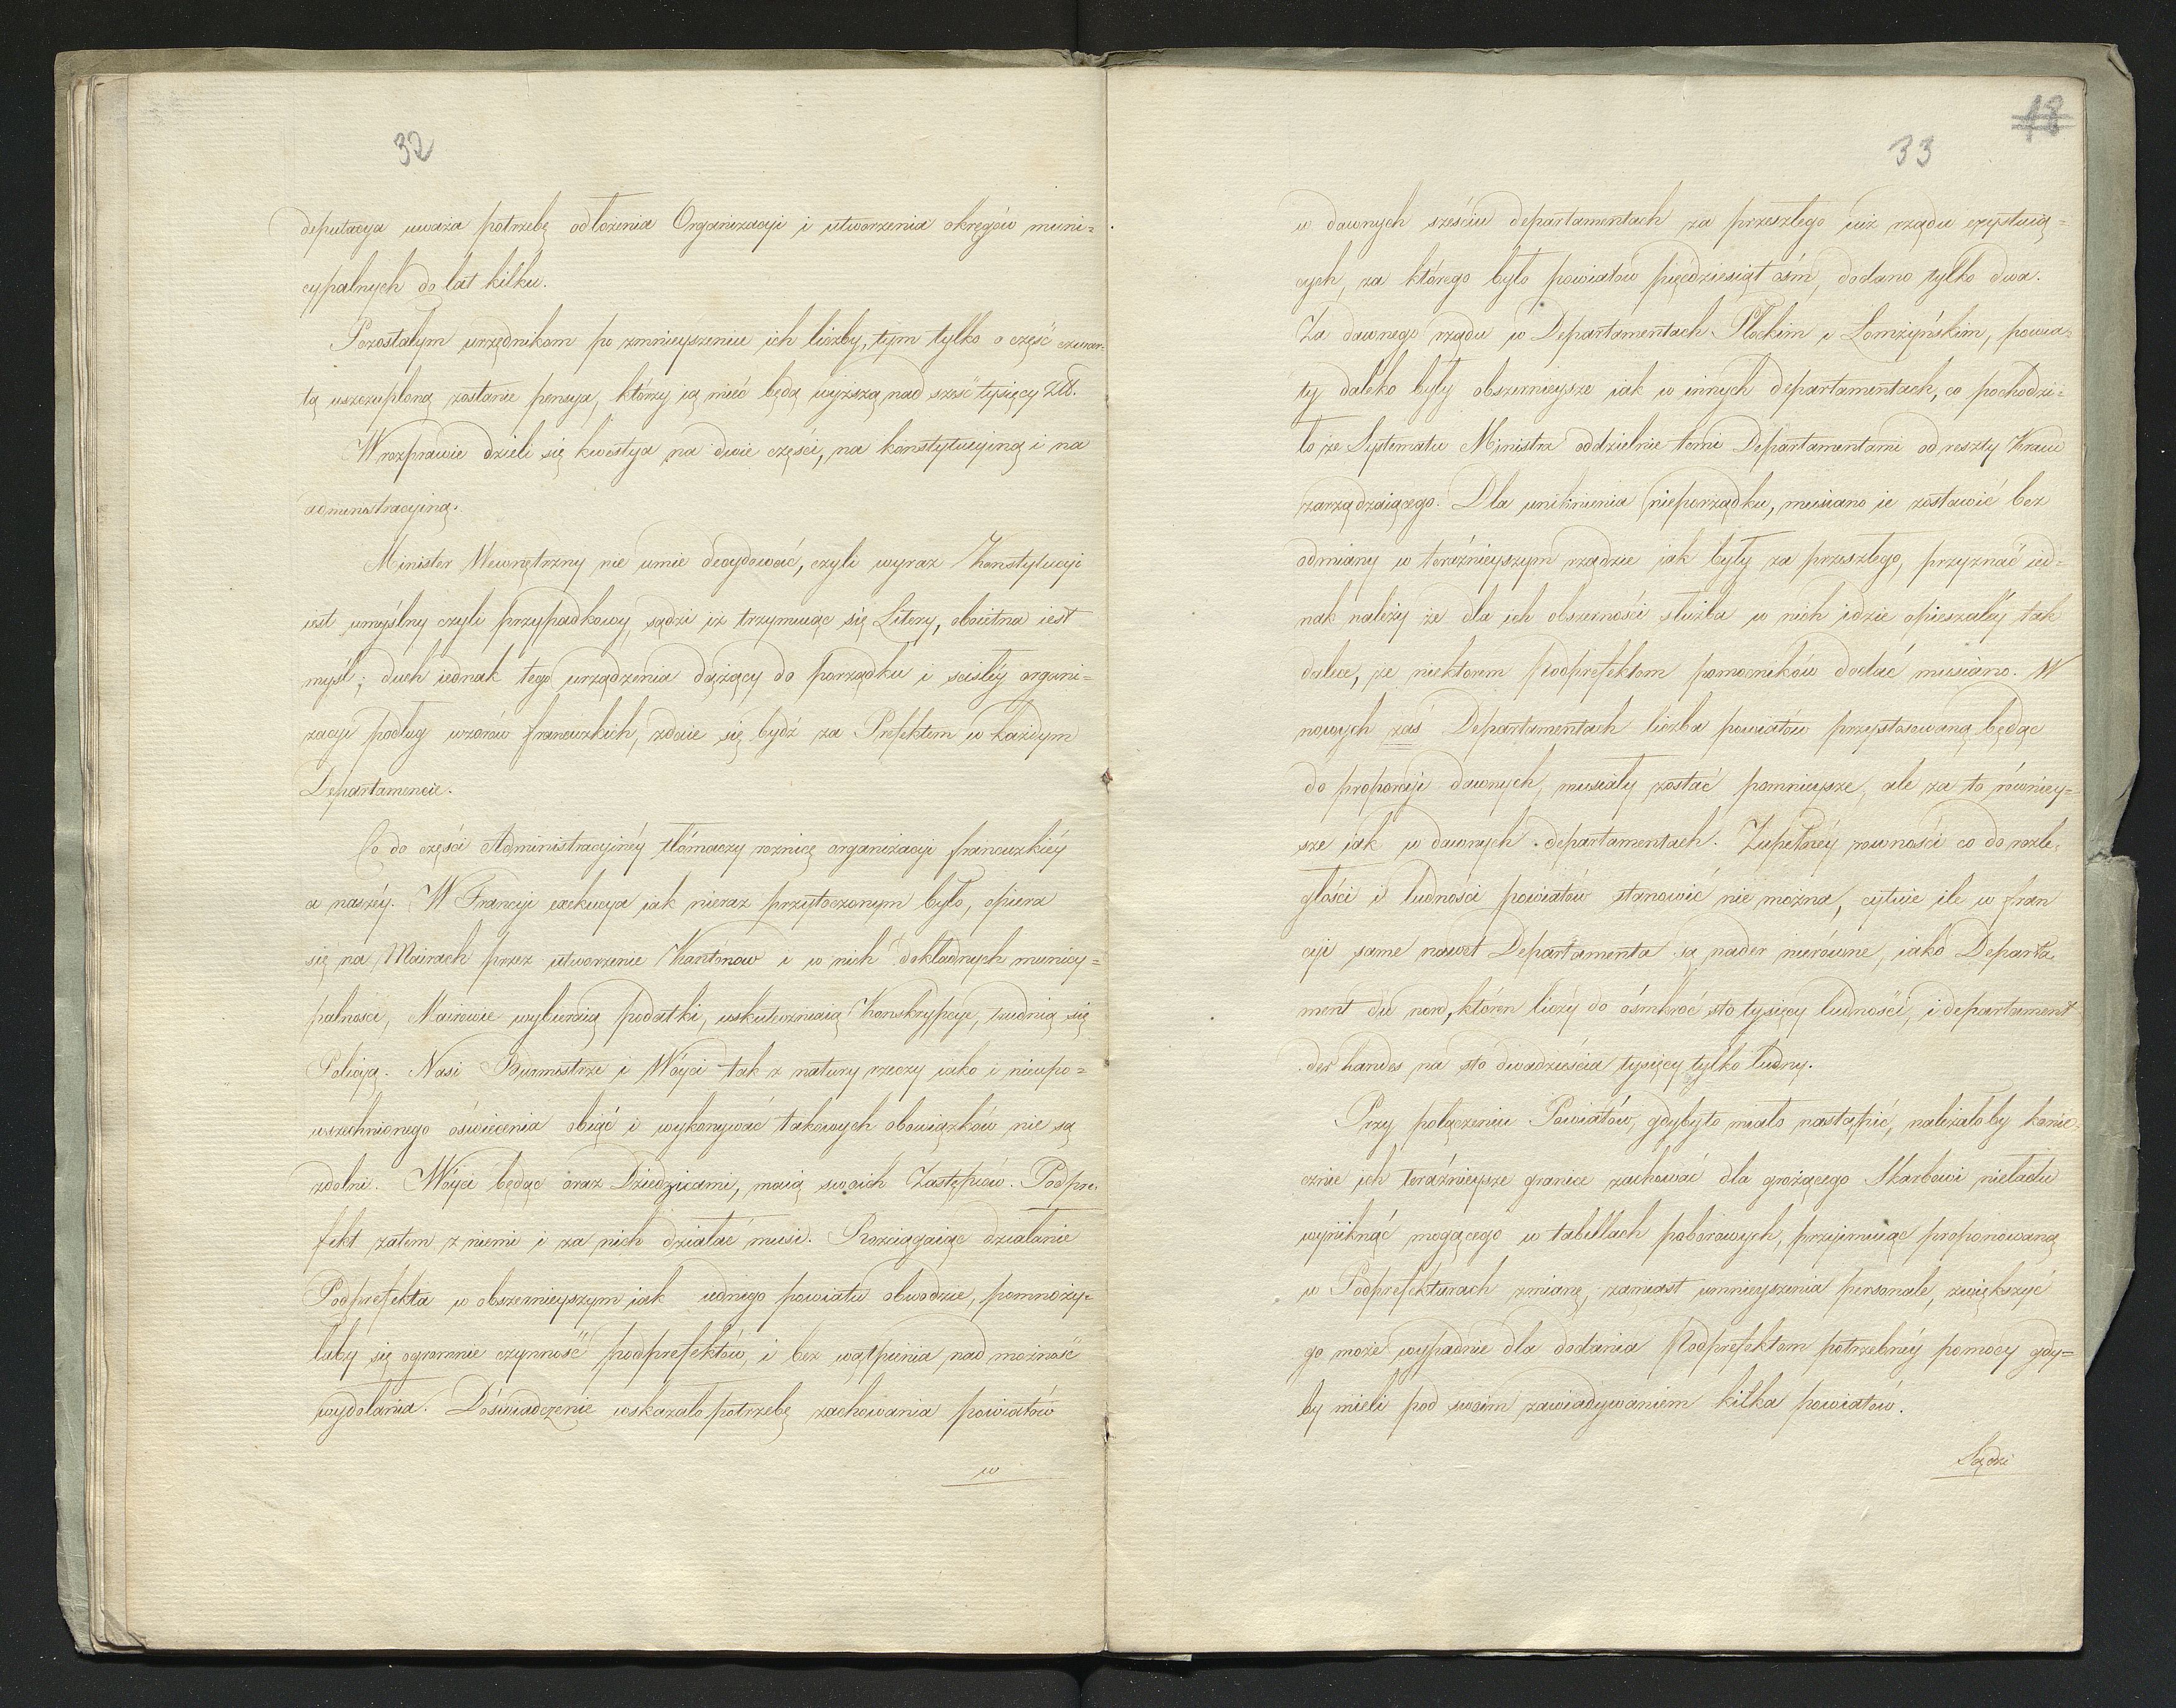 32
deputacya uważa potrzebę odłożenia Organizacyi i utworzenia okręgów muni=
cypalnych do lat kilku.
Pozostałym urzędnikom po zmnieyszeniu ich liczby, tym tylko o część czwar=
tą uszczuploną zostanie pensya, którzy ią mieć będą wyższą nad sześć tysięcy Złł.
W rozprawie dzieli się kwestya na dwie części, na konstytucyiną i na
administracyiną.
Minister Wewnętrzny nie umie decydować, czyli wyraz Konstytucyi
iest umyślny czyli przypadkowy, sądzi iż trzymaiąc się Litery, oboiętna iest
myśl; duch iednak tego urządzenia dążący do porządku i scisłéy organi=
zacyi podług wzorów francuzkich, zdaie się bydź za Prefektem w każdym
Departamencie.
Co do części Administracyinéy tłómaczy roznicę organizacyi francuzkiéy
a naszéy. W Francyi exekucya iak nieraz przytoczonym było, opiera
się na Mairach przez utworzenie Kantonow i w nich dokładnych municy=
palności, Mairowie wybieraią podatki, uskuteczniaią Konskrypcye, trudnią się
Policyą. Nasi Burmistrze i Wóyci tak z natury rzeczy iako i nieupo=
wszechnionego oświecenia obiąć i wykonywać takowych obowiązków nie są
zdolni. Wóyci będąc oraz Dziedzicami, maią swoich Zastępców. Podpre=
fekt zatem z niemi i za nich działać musi. Rozciągaiąc działanie
Podprefekta w obszernieyszym iak iednego powiatu obwodzie, pomnoży=
łaby się ogromnie czynność podprefektów, i bez wątpienia nad możność
wydołania. Doświadczenie wskazało potrzebę zachowania powiatów
w
18
33
w dawnych sześciu departamentach za przeszłego iuż rządu exystuią=
cych, za którego było powiatów pięćdziesiąt ośm, dodano tylko dwa.
Za dawnego rządu w Departamentach Płockim i Łomżyńskim, powia=
ty daleko były obszernieysze iak w innych departamentach, co pochodzi=
ło ze Systematu Ministra oddzielnie temi Departamentami od reszty Kraiu
zarządzaiącego. Dla uniknienia nieporządku, musiano ie zostawić bez
odmiany w teraźnieyszym rządzie iak były za przeszłego, przyznać ied=
nak należy że dla ich obszerności służba w nich idzie opieszaléy tak
dalece, że niektorem Podprefektom pomocników dodać musiano. W
nowych zaś Departamentach liczba powiatów przystosowaną będąc
do proporcyi dawnych, musiały zostać pomnieysze, ale za to równiey=
sze iak w dawnych departamentach. Zupełnéy rowności co do rozle=
głości i ludności powiatów stanowić nie można, cytuie ile w fran
cyi same nawet Departamenta są nader nierówne, iako Departa=
ment du nord, któren liczy do óśmkroć sto tysięcy ludności, i departament
des landes na sto dwadzieścia tysięcy tylko ludny.
Przy połączeniu Powiatów, gdyby to miało nastąpić, należałoby konie=
cznie ich teraźnieysze granice zachować dla grożącego Skarbowi nieładu
wyniknąć mogącego w tabellach poborowych, przyimuiąc proponowaną
w Podprefekturach zmianę, zamiast umnieyszenia personale, zwiększyć
go może wypadnie dla dodania Podprefektom potrzebnéy pomocy gdy=
by mieli pod swoim zawiadywaniem kilka powiatów.
Sądzi